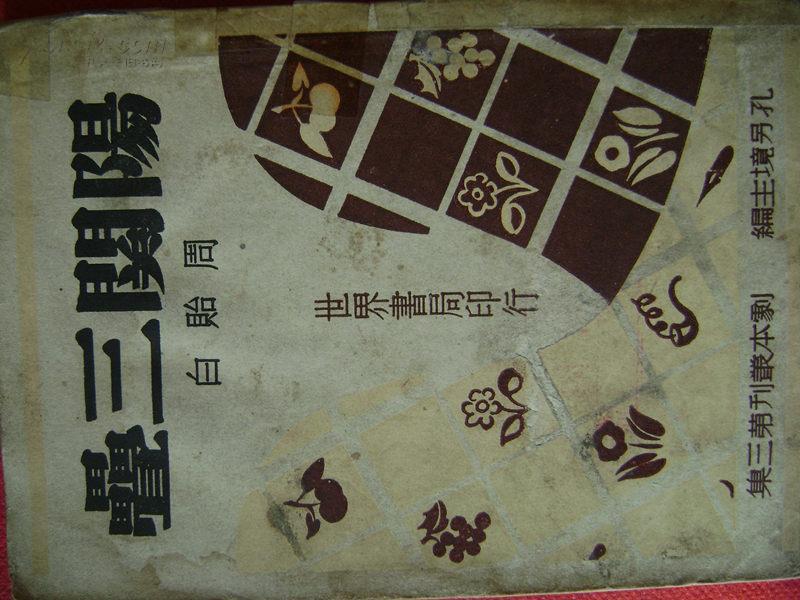 陽關三疊
周貽白
世界書局印行
孔另境主編
劇本叢刊第三集